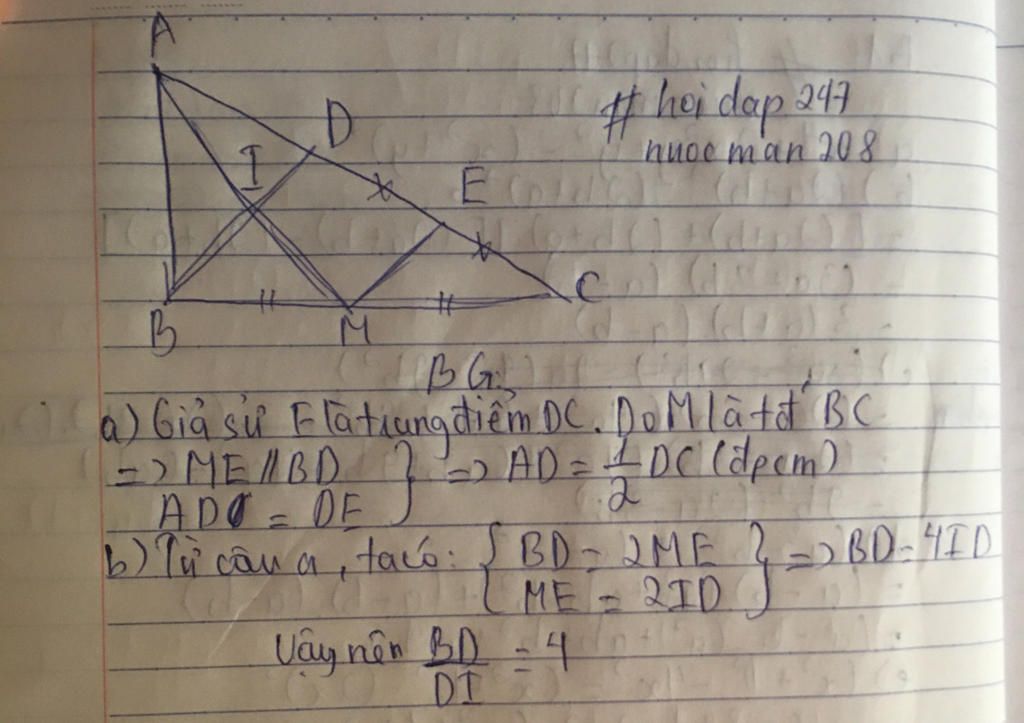 A
D
# hoi dap 247
nuoc man 208
I
E
B
M
C
BG:
a) Giả sử E là trung điểm DC. Do M là tđ BC
=> ME // BD } => AD = 1/2 DC (đpcm)
AD = DE
b) Từ câu a, ta có: { BD = 2ME } => BD = 4ID
ME = 2ID
Vậy nên BD/DI = 4